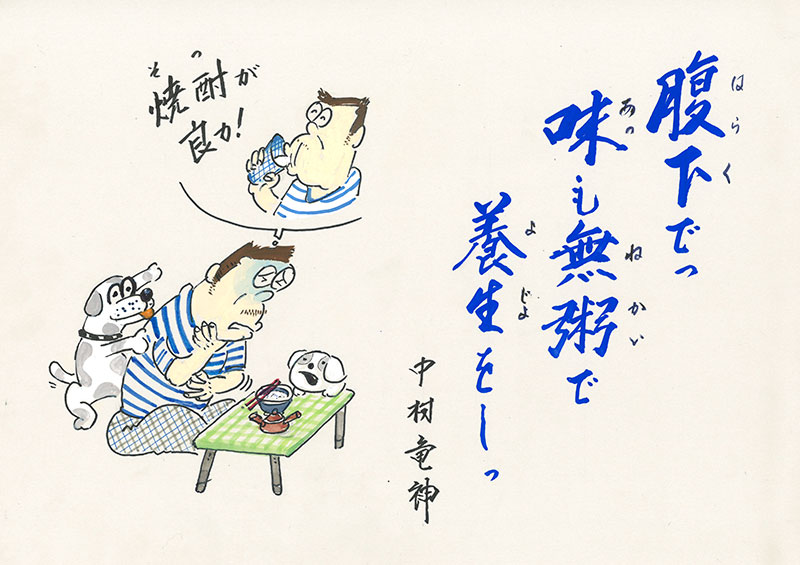 はらく
腹下でっ
あっ ねかい
味も無粥で
よ じよ
養生をしっ
中村竜神
そ つ
焼酎が
良か!